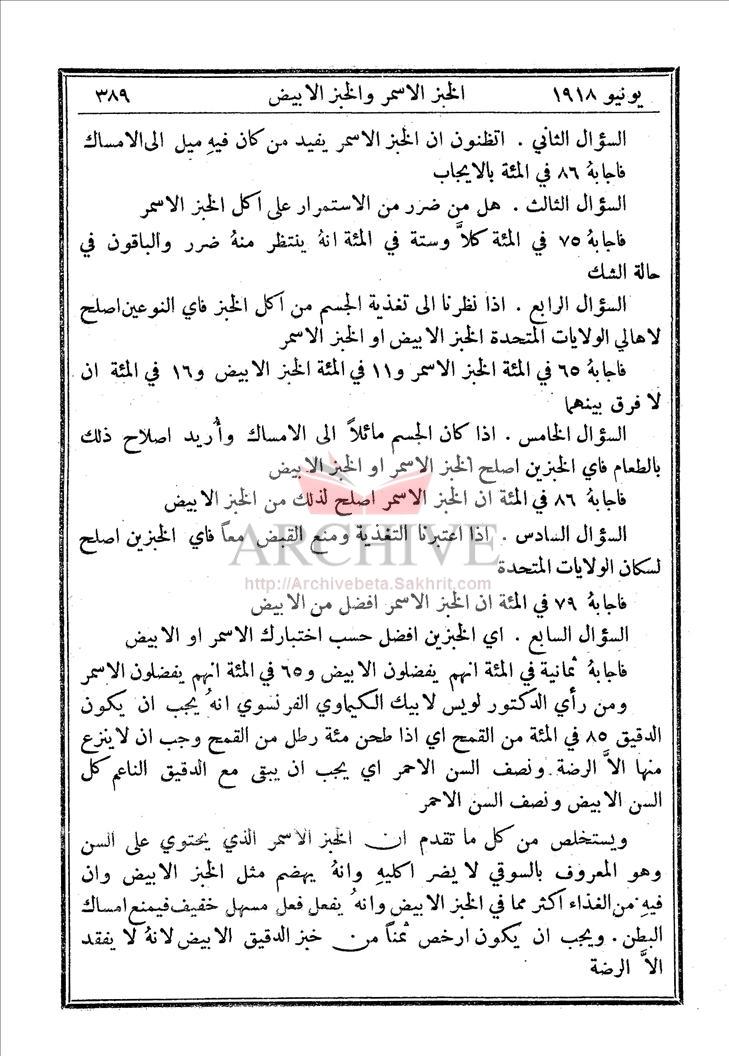 يونيو ١٩١٨ الخبز الاسمر والخبز الابيض ٣٨٩
السؤال الثاني . اتظنون ان الخبز الاسمر يفيد من كان فيهِ ميل الى الامساك
فاجابهُ ٨٦ في المئة بالايجاب
السؤال الثالث . هل من ضرر من الاستمرار على اكل الخبز الاسمر
فاجابهُ ٧٥ في المئة كلاَّ وستة في المئة انهُ ينتظر منهُ ضرر والباقون في
حالة الشك
السؤال الرابع . اذا نظرنا الى تغذية الجسم من اكل الخبز فاي النوعين اصلح
لاهالي الولايات المتحدة الخبز الابيض او الخبز الاسمر
فاجابهُ ٦٥ في المئة الخبز الاسمر و١١ في المئة الخبز الابيض و١٦ في المئة ان
لا فرق بينهما
السؤال الخامس . اذا كان الجسم مائلاً الى الامساك وأُريد اصلاح ذلك
بالطعام فاي الخبزين اصلح الخبز الاسمر او الخبز الابيض
فاجابهُ ٨٦ في المئة ان الخبز الاسمر اصلح لذلك من الخبز الابيض
السؤال السادس . اذا اعتبرنا التغذية ومنع القبض معاً فاي الخبزين اصلح
ARCHIVE
لسكان الولايات المتحدة
http://Archivebeta.Sakhrit.com
فاجابهُ ٧٩ في المئة ان الخبز الاسمر افضل من الابيض
السؤال السابع . اي الخبزين افضل حسب اختبارك الاسمر او الابيض
فاجابهُ ثمانية في المئة انهم يفضلون الابيض و٦٥ في المئة انهم يفضلون الاسمر
ومن رأي الدكتور لويس لابيك الكيماوي الفرنسوي انهُ يجب ان يكون
الدقيق ٨٥ في المئة من القمح اي اذا طحن مئة رطل من القمح وجب ان لا ينزع
منها الاَّ الرضة ونصف السن الاحمر اي يجب ان يبقى مع الدقيق الناعم كل
السن الابيض ونصف السن الاحمر
ويستخلص من كل ما تقدم ان الخبز الاسمر الذي يحتوي على السن
وهو المعروف بالسوقي لا يضر اكليهِ وانهُ يهضم مثل الخبز الابيض وان
فيهِ من الغذاء اكثر مما في الخبز الابيض وانهُ يفعل فعل مسهل خفيف فيمنع امساك
البطن . ويجب ان يكون ارخص ثمناً من خبز الدقيق الابيض لانهُ لا يفقد
الاَّ الرضة